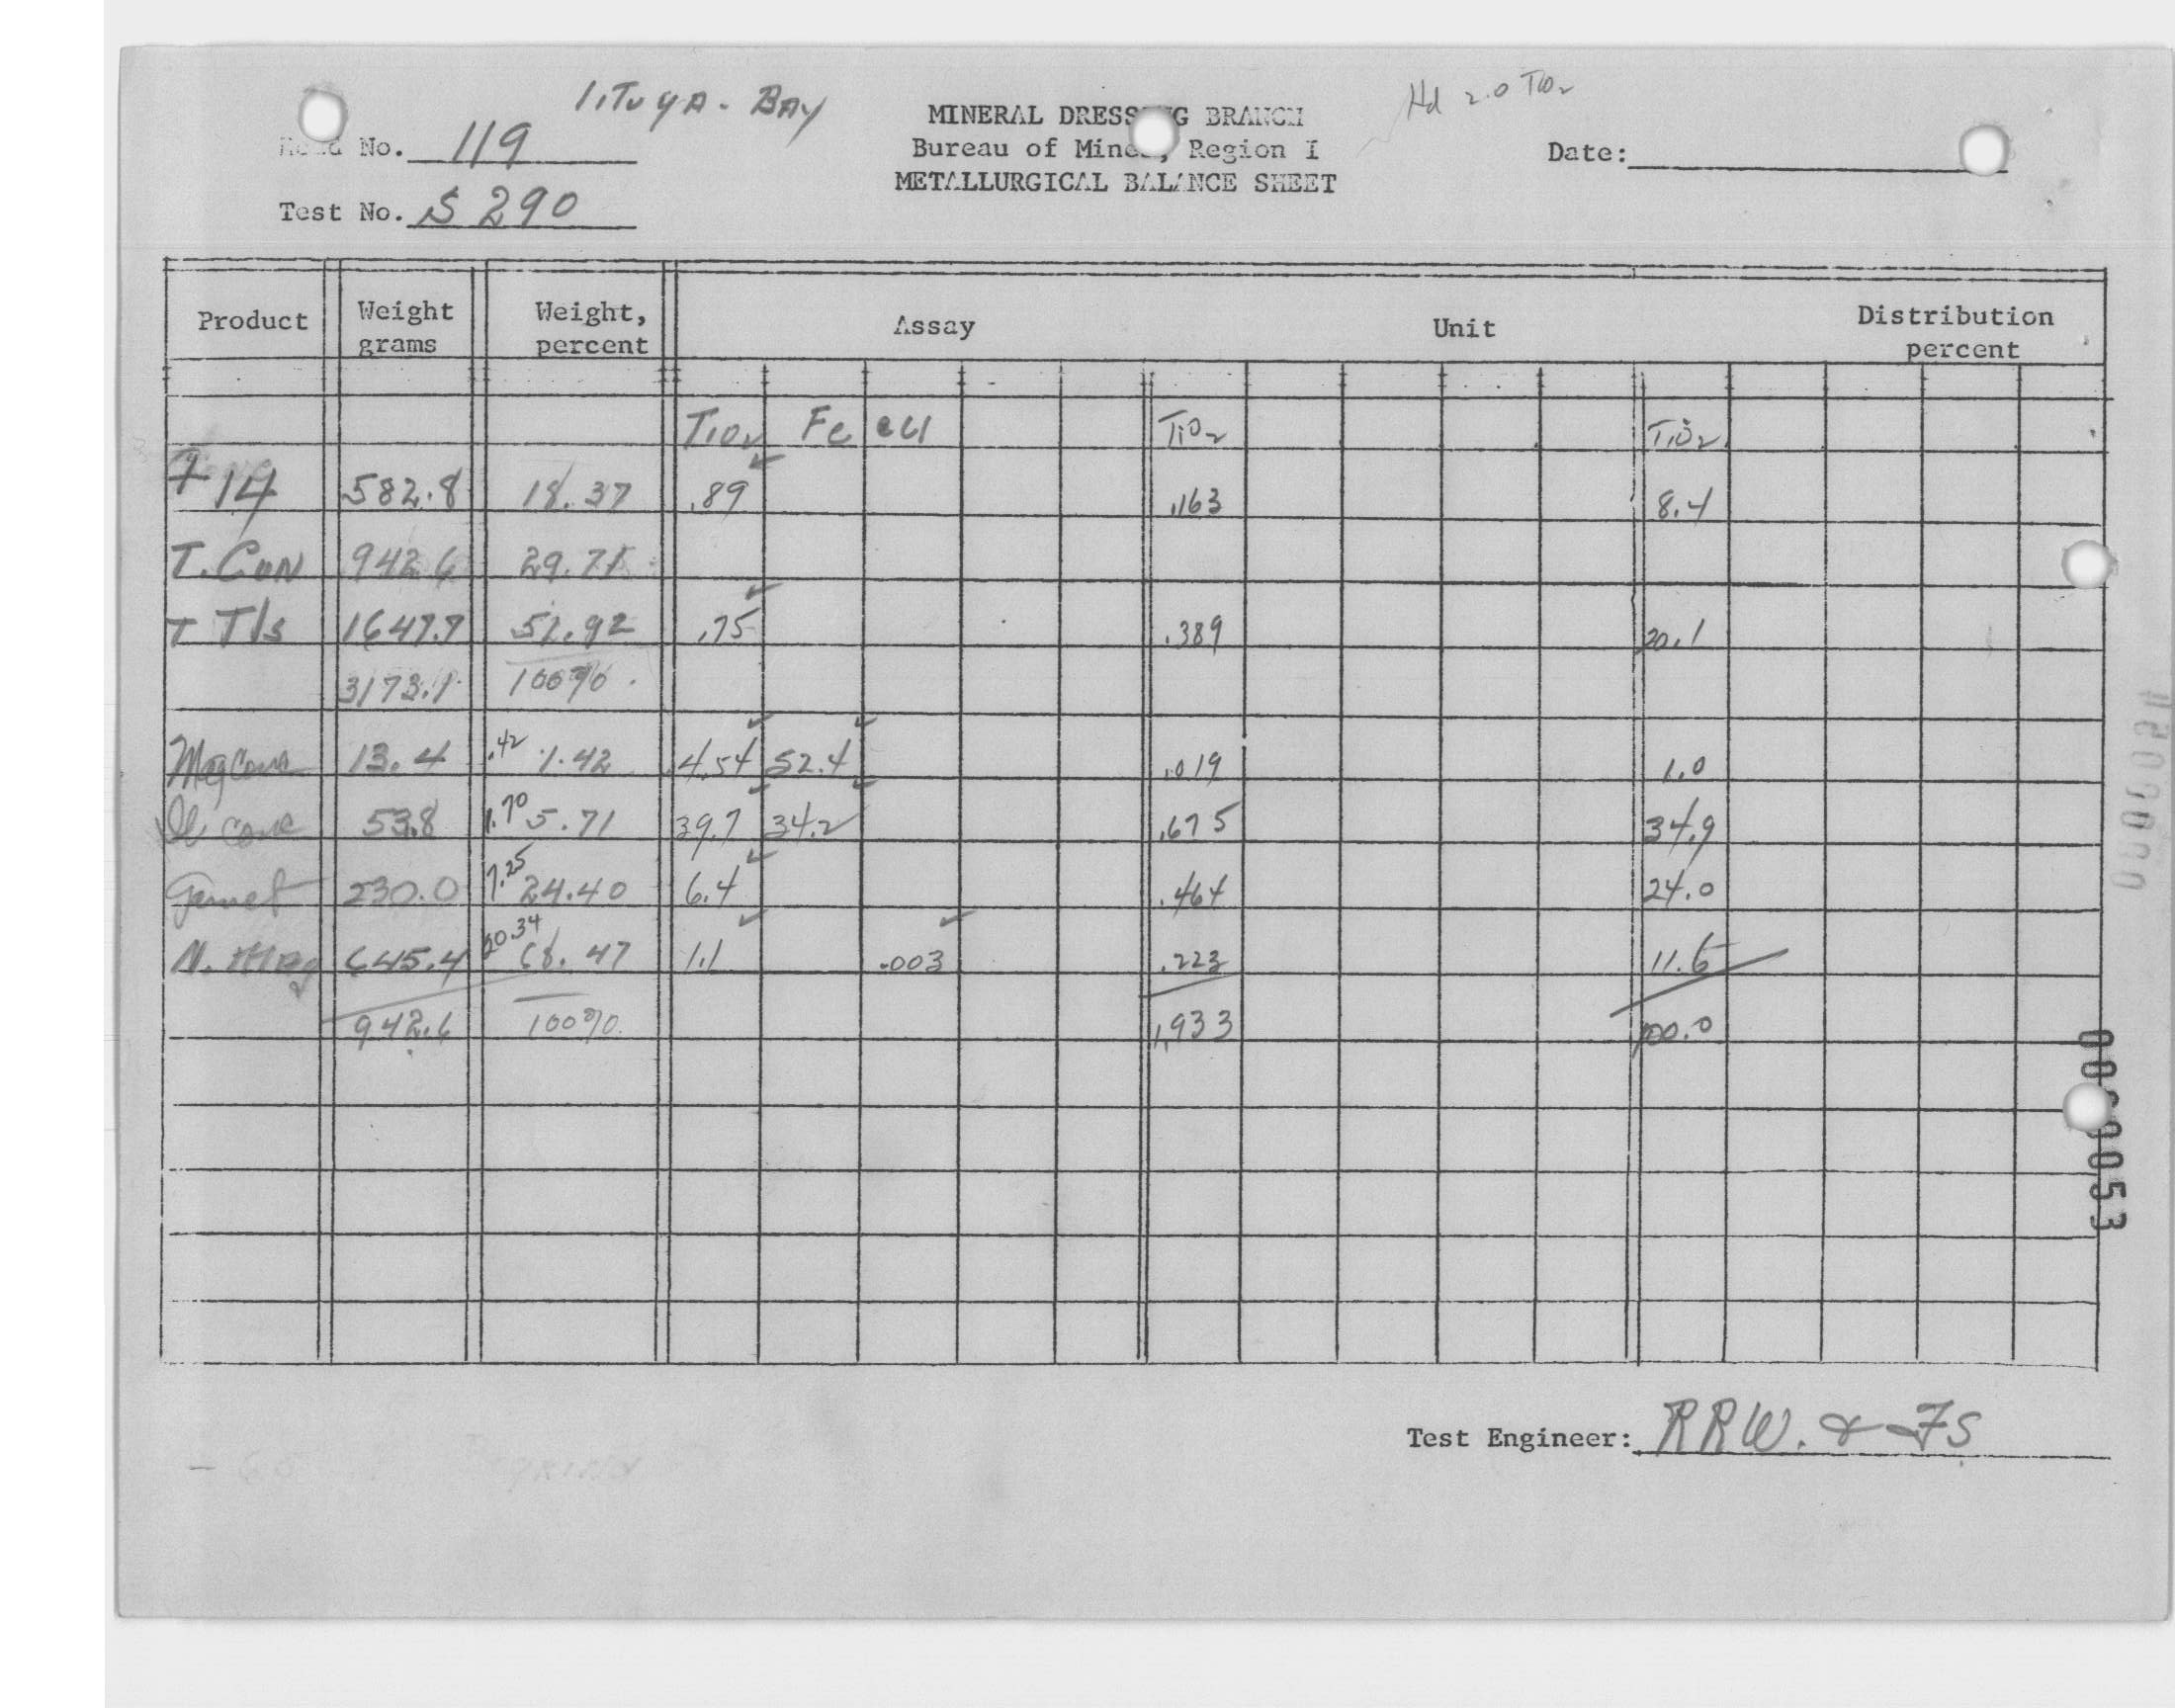 LITUYA - BAY
Hd 2.0 TiO2
MINERAL DRESSING BRANCH
Head No. 119
Bureau of Mines, Region I
Date:
METALLURGICAL BALANCE SHEET
Test No. S 290
Product Weight grams Weight, percent Assay Unit Distribution percent
TiO2 Fe eU TiO2 TiO2
+14 582.8 18.37 .89 .163 8.4
T. CON 942.6 29.71
T Tls 1647.7 51.92 .75 .389 20.1
3173.1 100%
Mag Conc 13.4 .42 1.42 4.54 52.4 .019 1.0
Il conc 53.8 1.70 5.71 39.7 34.2 .675 34.9
Garnet 230.0 7.25 24.40 6.4 .464 24.0
N. Mag 645.4 20.34 68.47 1.1 .003 .223 11.6
942.6 100% 1.933 100.0
Test Engineer: RRW. & FS